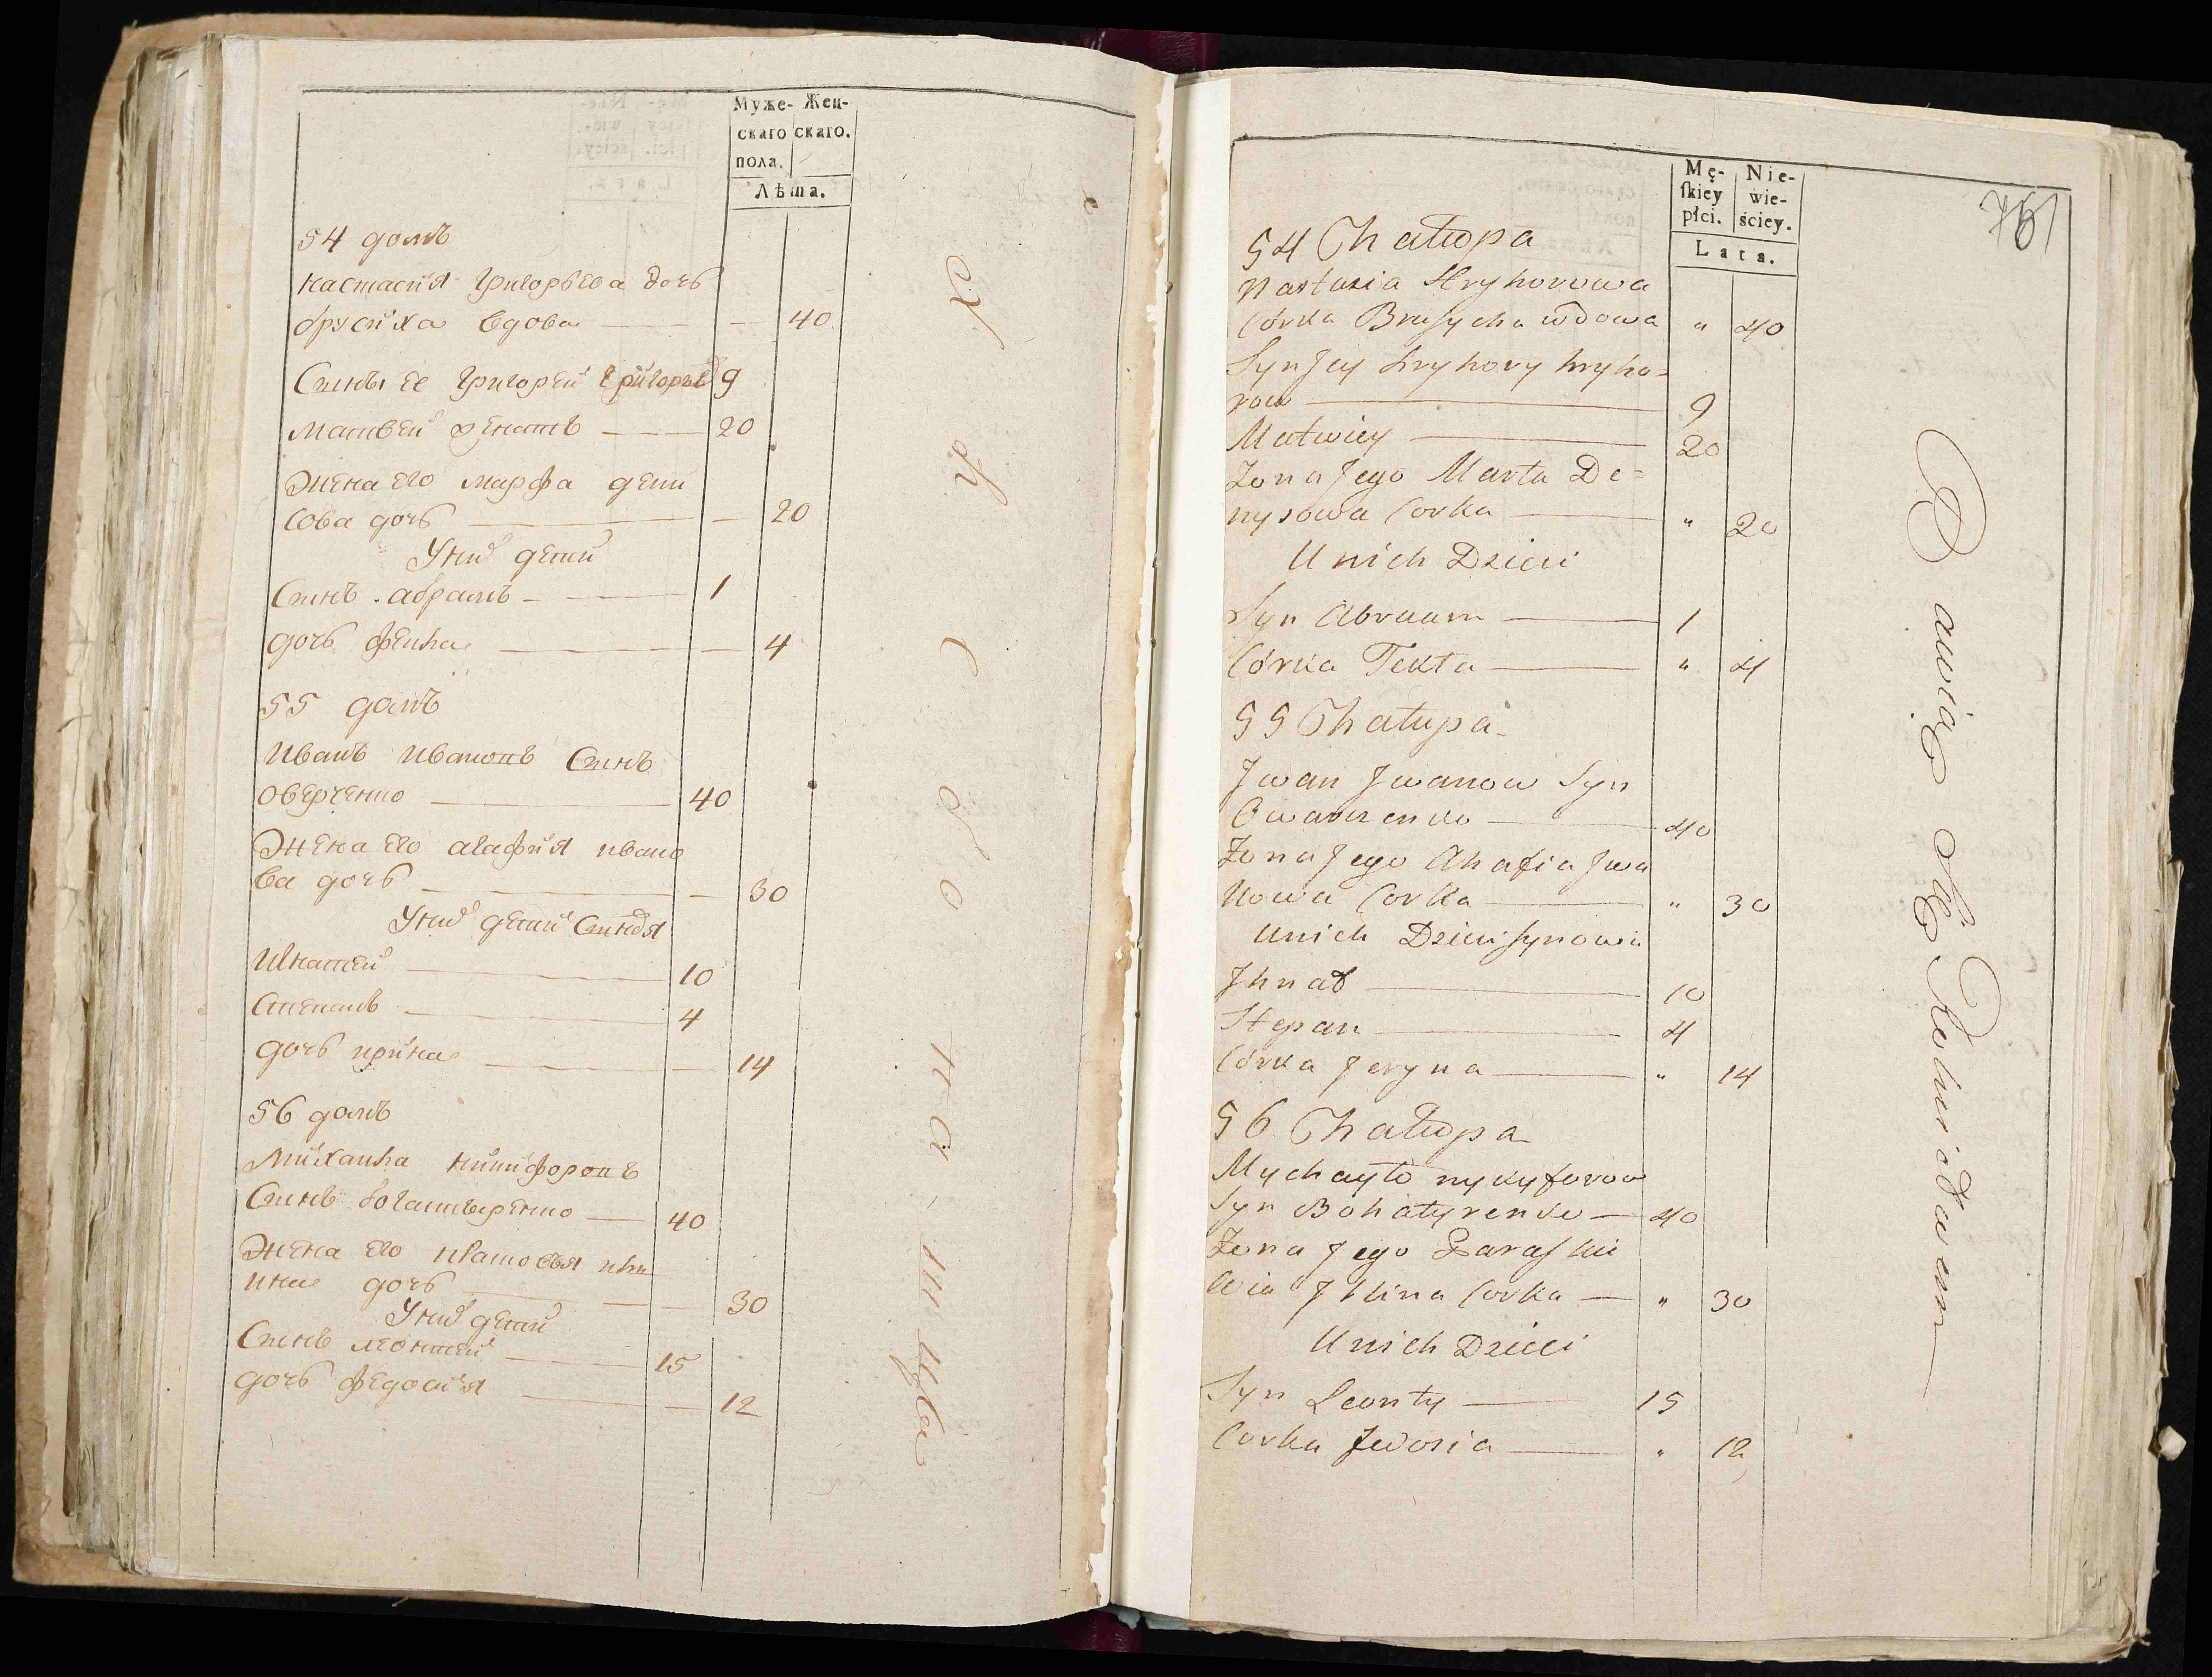 Муже- Жен-
скаго скаго.
пола.
Лѣта.
54 домъ
настасия григорьева дочь
брусиха вдова — — 40
Сыны ее григорей григорьев 9
матвей женатъ — 20
Жена его марфа дени
сова дочь — — 20
У них детей
Сынъ абрамъ — 1
дочь фекла — — 4
55 домъ
иванъ ивановъ Сынъ
оверченко — 40
Жена его агафия ивано
ва дочь — — 30
У них детей Сыновя
Игнатей — 10
Степанъ — 4
дочь ирина — — 14
56 домъ
Михаила никифоровъ
Сынъ богатыренко — 40
Жена его
ина дочь — — 30
У них детей
Сынъ леонтей — 15
дочь федосия — — 12
761
Mę- Nie-
skiey wie-
płci. ściey.
Lata.
54 Chałupa
Nastazia Hryhorowa
Córka Brusycha wdowa " 40
Syn Jey Hryhory hryho=
row — 9
Matwiey — 20
Zona Jego Marta De=
nysowa Corka — " 20
U nich Dzieci
Syn Abraam — 1
Córka Tekla — " 4
55 Chałupa
Jwan Jwanow Syn
Owarczenko — 40
Zona Jego Ahafia Jwa
nowa Corka — " 30
U nich Dzieci synowie
Jhnat — 10
Stepan — 4
Córka Jeryna — " 14
56 Chałupa
Mychayło nykyforow
Syn Bohatyrenko — 40
Zona Jego Paraski
wia Jllina Corka — " 30
U nich Dzieci
Syn Leonty — 15
Corka Fedosia — " 12